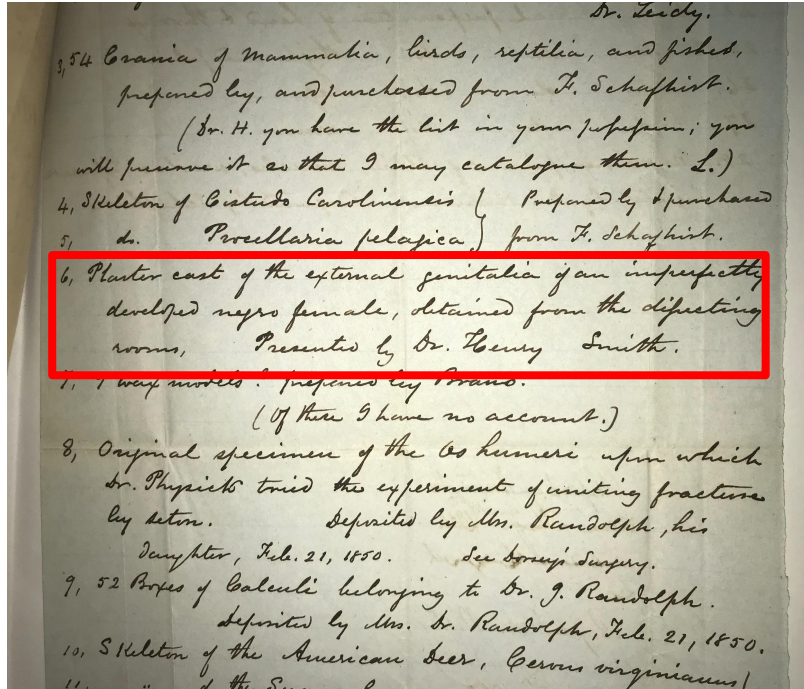 Dr. Leidy.
3, 54 Crania of mammalia, birds, reptilia, and fishes,
prepared by, and purchased from F. Schafhirt.
(Dr. H. you have the list in your possession; you
will preserve it so that I may catalogue them. L.)
4, Skeleton of Cistudo Carolinensis } Prepared by & purchased
5, do. Procellaria pelagica } from F. Schafhirt.
6, Plaster cast of the external genitalia of an imperfectly
developed negro female, obtained from the dissecting
rooms, Presented by Dr. Henry Smith.
7, wax models prepared by
(Of these I have no account.)
8, Original specimen of the Os humeri upon which
Dr. Physick tried the experiment of uniting fracture
by seton. Deposited by Mrs. Randolph, his
daughter, Feb. 21, 1850. See Dorsey's Surgery.
9, 52 Boxes of Calculi belonging to Dr. J. Randolph.
Deposited by Mrs. Dr. Randolph, Feb. 21, 1850.
10, Skeleton of the American Deer, Cervus virginianus